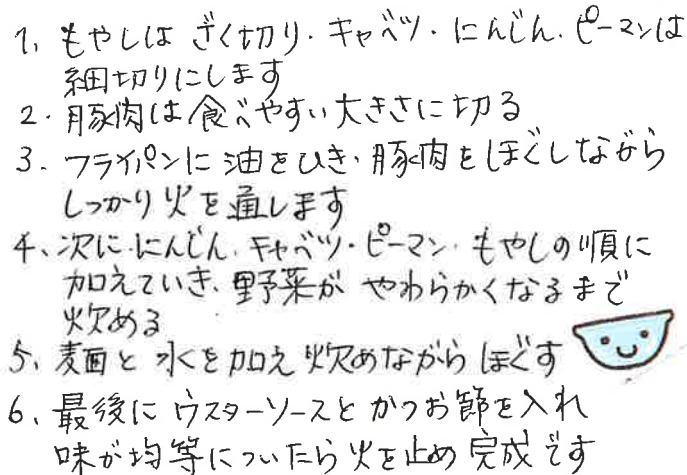 1、もやしは ざく切り・キャベツ・にんじん、ピーマンは
細切りにします
2・豚肉は食べやすい大きさに切る
3、フライパンに油をひき、豚肉をほぐしながら
しっかり火を通します
4、次に、にんじん、キャベツ・ピーマン、もやしの順に
加えていき、野菜が やわらかくなるまで
炊める
5、麺と水を加え炊めながらほぐす
6、最後にウスターソースとかつお節を入れ
味が均等についたら火を止め完成です